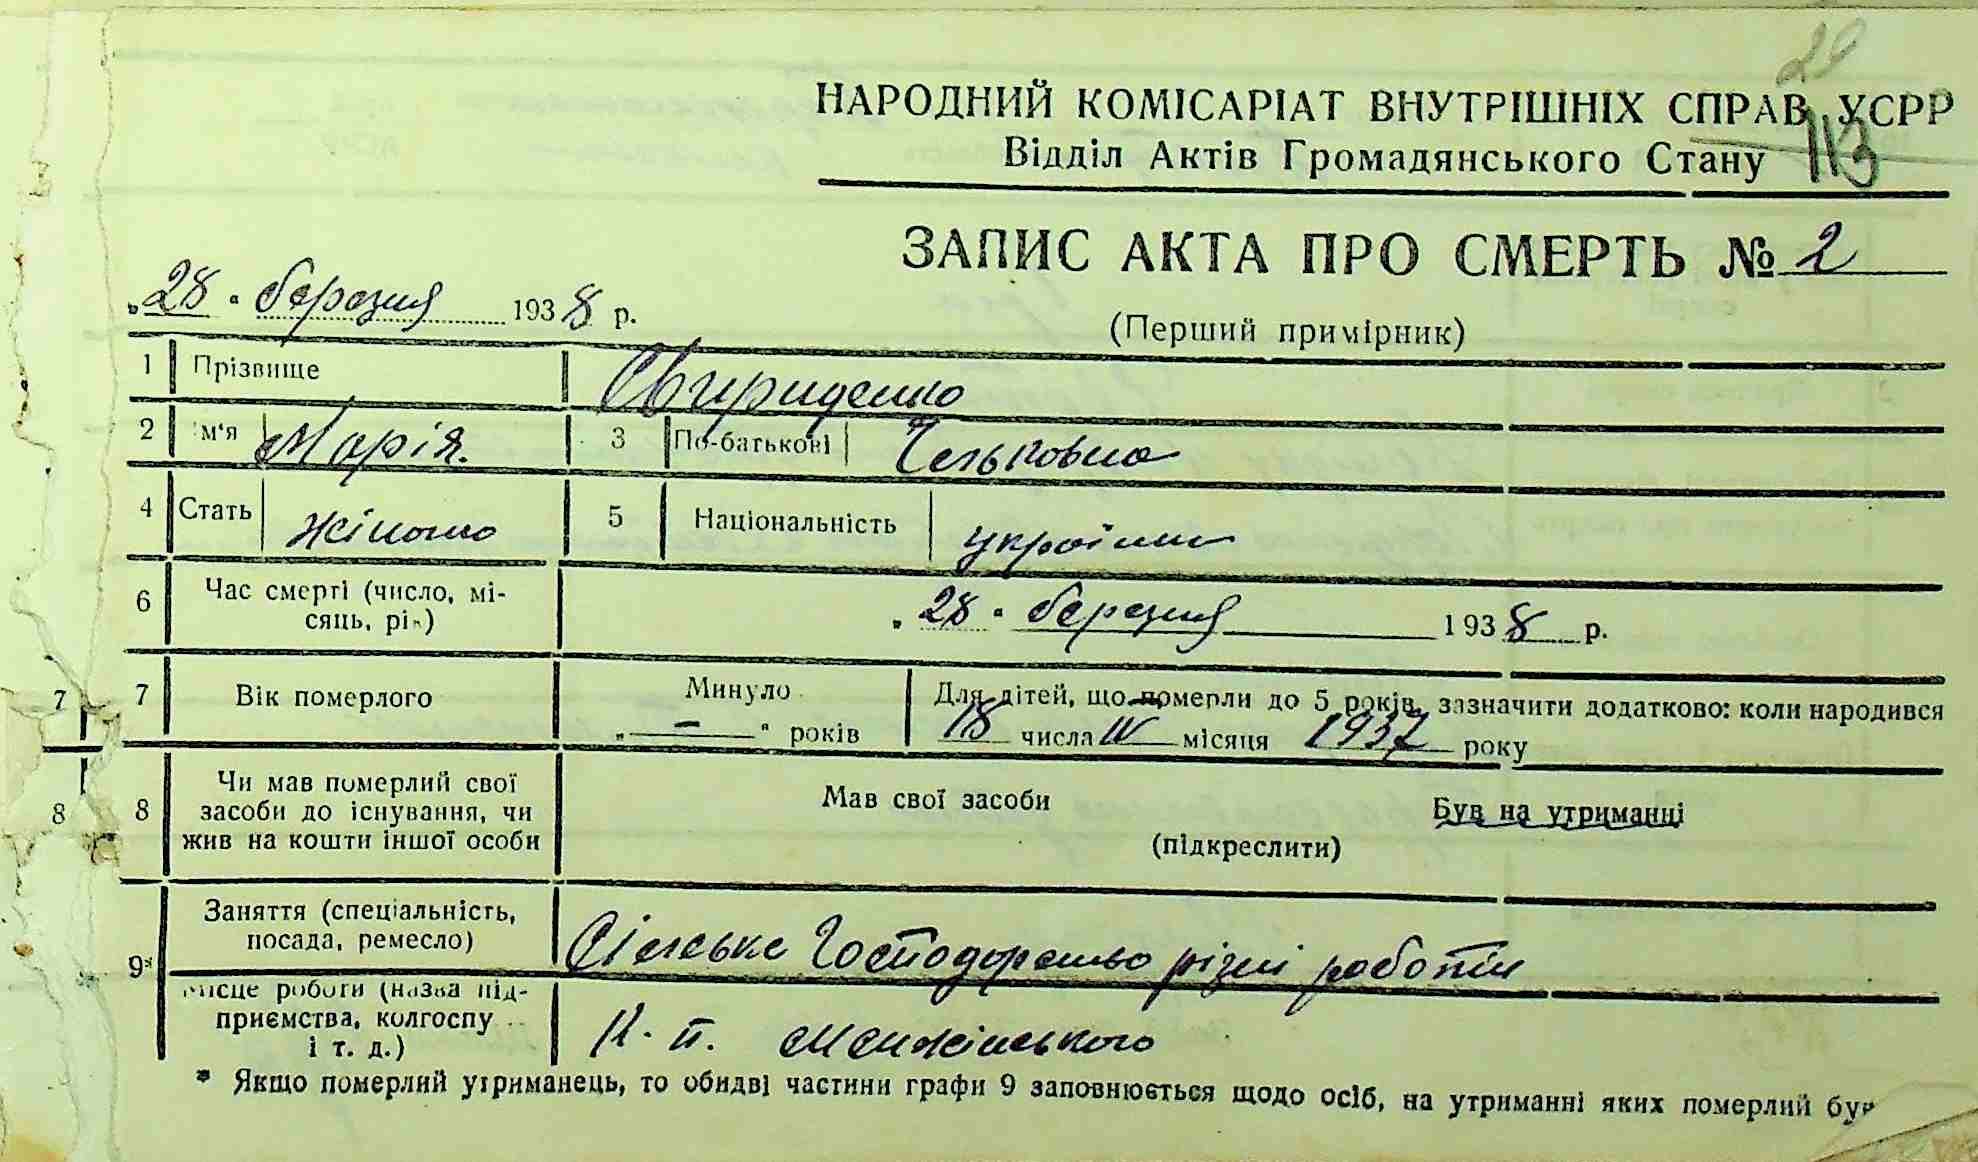 20
НАРОДНИЙ КОМІСАРІАТ ВНУТРІШНІХ СПРАВ УСРР
113
Відділ Актів Громадянського Стану
ЗАПИС АКТА ПРО СМЕРТЬ № 2
„28“ березня 1938 р.
(Перший примірник)
1 Прізвище Свириденко
2 Ім'я Марія. 3 По-батькові
4 Стать жіноча 5 Національність українка
6 Час смерті (число, мі-
сяць, рік) „28“ березня 1938 р.
7 7 Вік померлого Минуло „ – “ років Для дітей, що померли до 5 років, зазначити додатково: коли народився
18 числа IV місяця 1937 року
8 8 Чи мав померлий свої
засоби до існування, чи
жив на кошти іншої особи
Мав свої засоби Був на утриманні
(підкреслити)
9* Заняття (спеціальність,
посада, ремесло) Сільське Господарство різні роботи
Місце роботи (назва під-
приємства, колгоспу
і т. д.) К. п. Менжінського
* Якщо померлий утриманець, то обидві частини графи 9 заповнюється щодо осіб, на утриманні яких померлий був